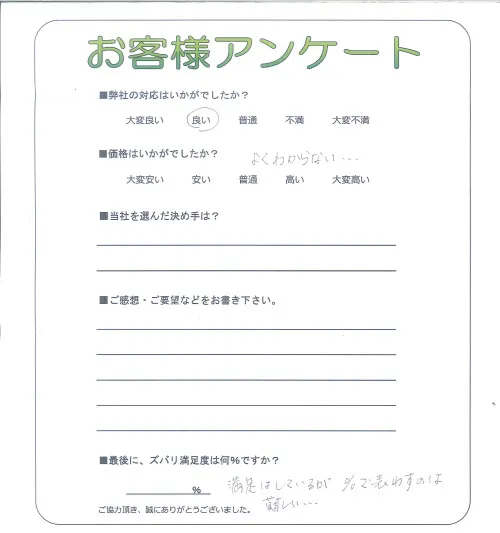 お客様アンケート
■弊社の対応はいかがでしたか？
大変良い 良い 普通 不満 大変不満
■価格はいかがでしたか？ よくわからない...
大変安い 安い 普通 高い 大変高い
■当社を選んだ決め手は？
■ご感想・ご要望などをお書き下さい。
■最後に、ズバリ満足度は何%ですか？
% 満足はしているが %で表わすのは
難しい...
ご協力頂き、誠にありがとうございました。